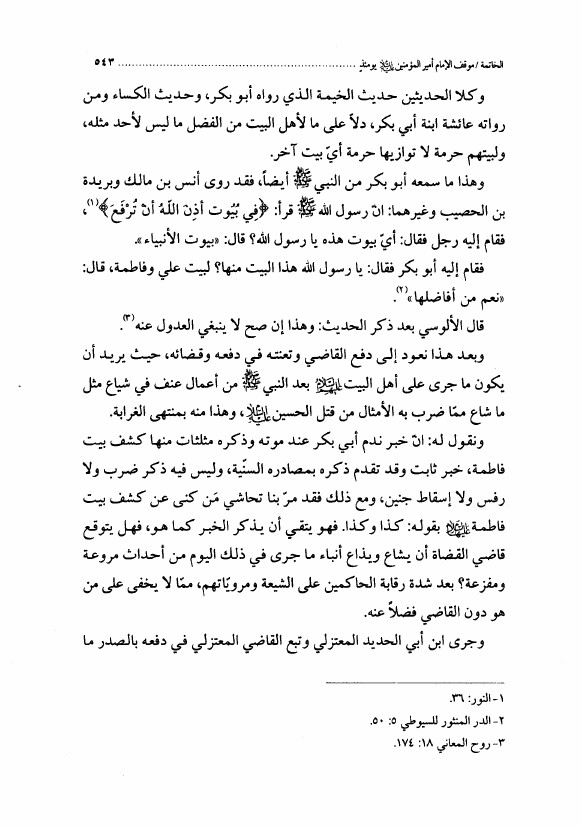 الخاتمة /موقف الإمام أمير المؤمنين عليه السلام يومئذٍ ................................................................ ٥٤٣
وكلا الحديثين حديث الخيمة الذي رواه أبو بكر، وحديث الكساء ومن
رواته عائشة ابنة أبي بكر، دلاّ على ما لأهل البيت من الفضل ما ليس لأحد مثله،
ولبيتهم حرمة لا توازيها حرمة أيّ بيت آخر.
وهذا ما سمعه أبو بكر من النبي ﷺ أيضاً، فقد روى أنس بن مالك وبريدة
بن الحصيب وغيرهما: انّ رسول الله ﷺ قرأ: ﴿فِي بُيُوت أذِنَ اللَّهُ أنْ تُرْفَعَ﴾(١)،
فقام إليه رجل فقال: أيّ بيوت هذه يا رسول الله؟ قال: «بيوت الأنبياء».
فقام إليه أبو بكر فقال: يا رسول الله هذا البيت منها؟ لبيت علي وفاطمة، قال:
«نعم من أفاضلها»(٢).
قال الألوسي بعد ذكر الحديث: وهذا إن صح لا ينبغي العدول عنه(٣).
وبعد هذا نعود إلى دفع القاضي وتعنته في دفعه وقضائه، حيث يريد أن
يكون ما جرى على أهل البيت عليهم السلام بعد النبي ﷺ من أعمال عنف في شياع مثل
ما شاع ممّا ضرب به الأمثال من قتل الحسين عليه السلام، وهذا منه بمنتهى الغرابة.
ونقول له: انّ خبر ندم أبي بكر عند موته وذكره مثلثات منها كشف بيت
فاطمة، خبر ثابت وقد تقدم ذكره بمصادره السنّية، وليس فيه ذكر ضرب ولا
رفس ولا إسقاط جنين، ومع ذلك فقد مرّ بنا تحاشي مَن كنى عن كشف بيت
فاطمة عليها السلام بقوله: كذا وكذا. فهو يتقي أن يذكر الخبر كما هو، فهل يتوقع
قاضي القضاة أن يشاع ويذاع أنباء ما جرى في ذلك اليوم من أحداث مروعة
ومفزعة؟ بعد شدة رقابة الحاكمين على الشيعة ومرويّاتهم، ممّا لا يخفى على من
هو دون القاضي فضلاً عنه.
وجرى ابن أبي الحديد المعتزلي وتبع القاضي المعتزلي في دفعه بالصدر ما
١- النور: ٣٦.
٢- الدر المنثور للسيوطي ٥: ٥٠.
٣- روح المعاني ١٨: ١٧٤.